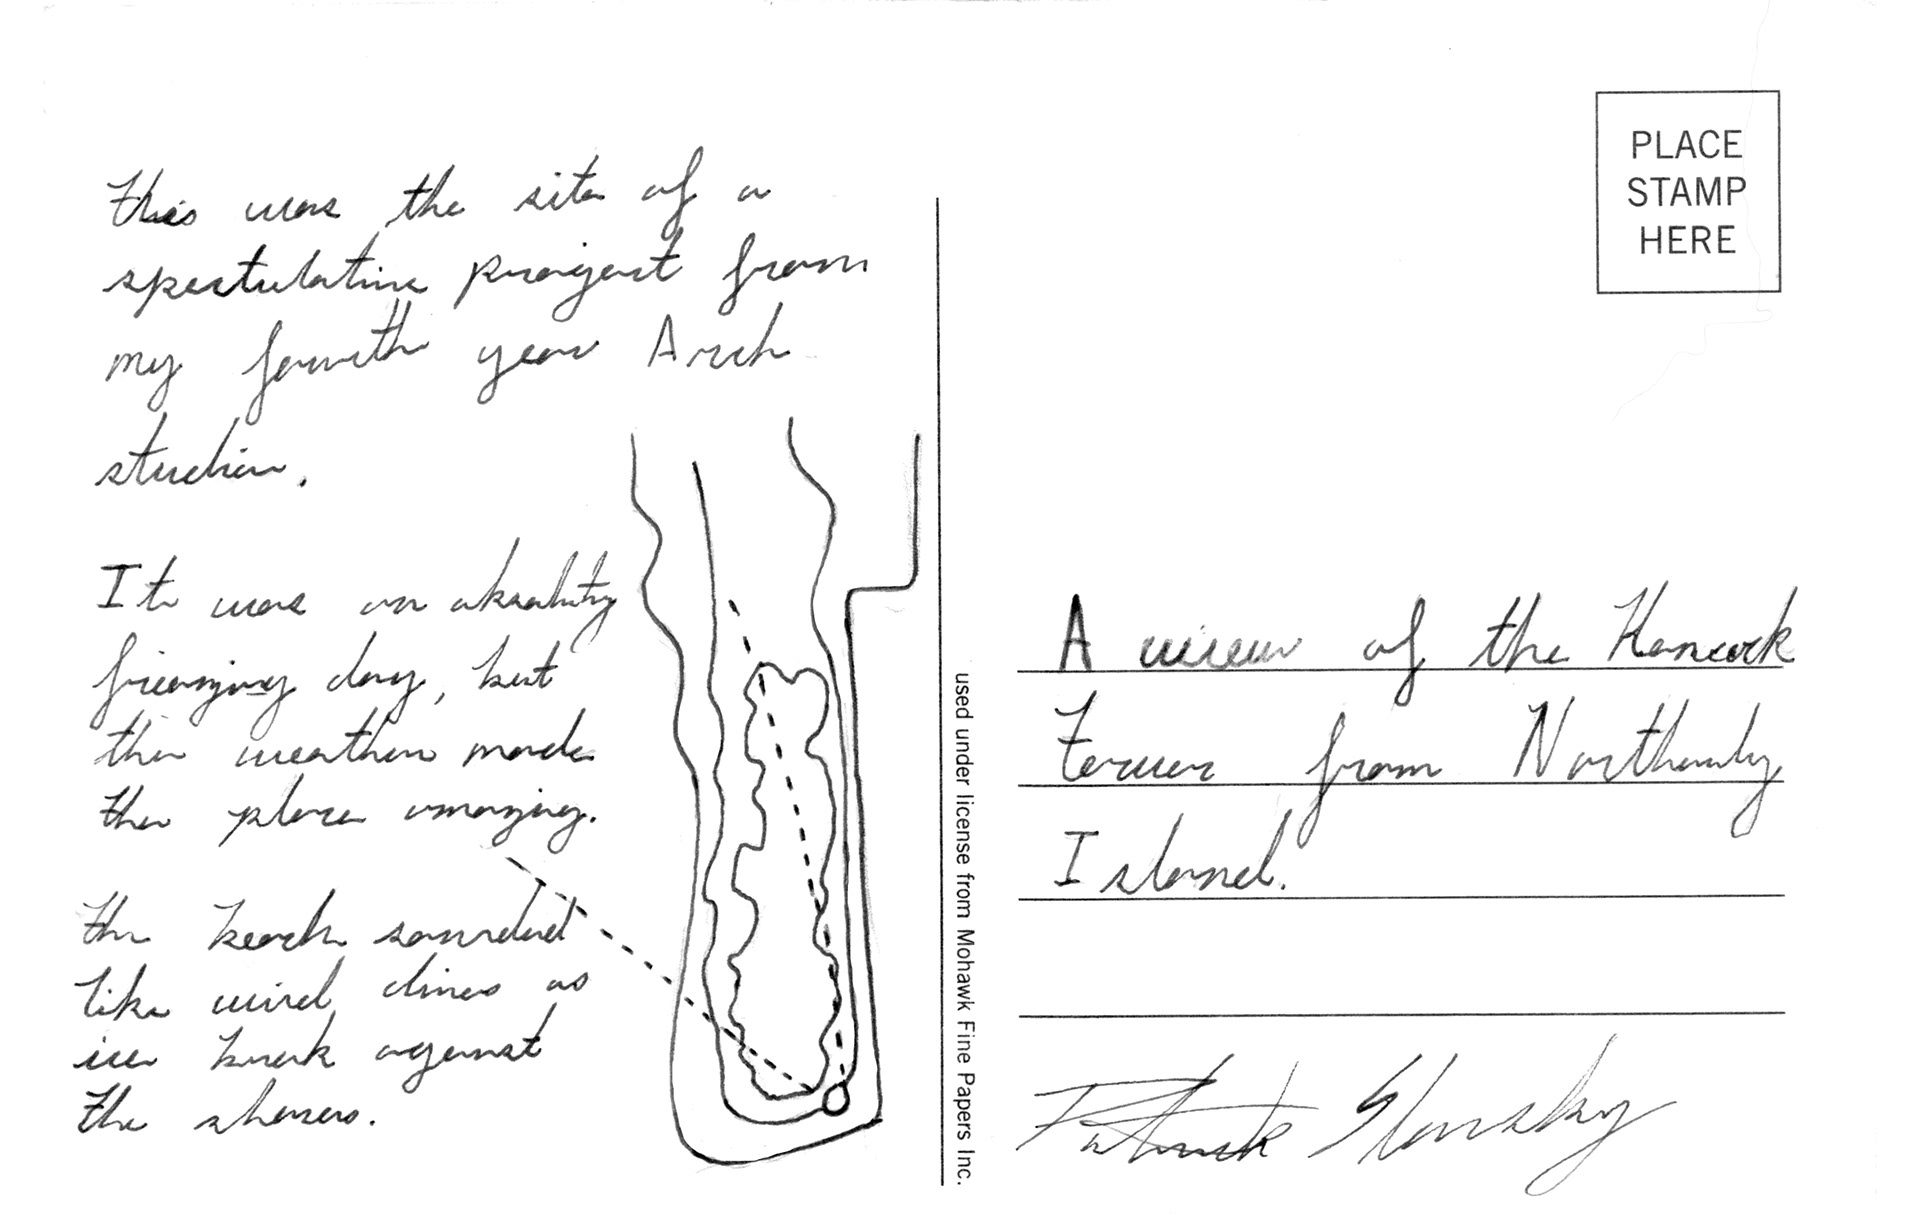 This was the site of a
spectulative project from
my fourth year Arch
studio.
It was an absolutly
freezing day, but
the weather made
the place amazing.
the beach sounded
like wind chimes as
ice break against
the shores.
PLACE
STAMP
HERE
used under license from Mohawk Fine Papers Inc.
A view of the Hancock
Tower from Northerly
Island.
Patrick